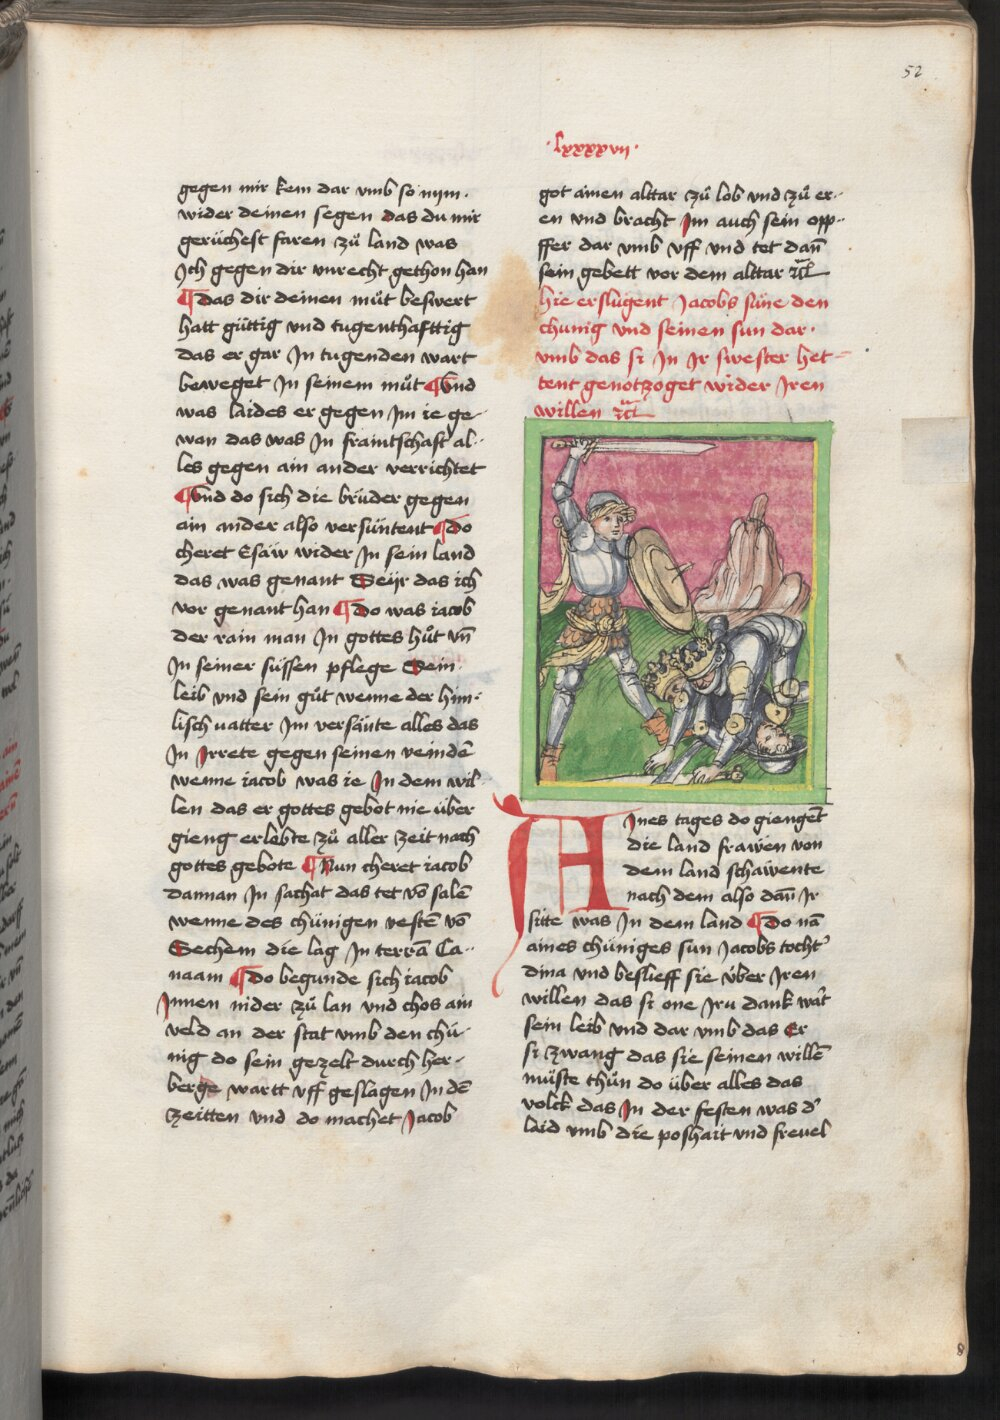 52
·lxxxxvii·
gegen mir kem dar vmb so nym·
wider deinen segen das du mir
gerüchest faren zů land was
Ich gegen dir vnrecht gethon han
¶Das dir deinen můt beswert
hatt güttig vnd tugenthafttig
das er gar In tugenden wart
beweget In seinem můt ¶Vnd
was laides er gegen Im ie ge-
wan das was In frauntschaft al-
les gegen ain ander verrichtet
¶Vnd do sich die brüder gegen
ain ander also versüntent ¶Do
cheret Esaw wider In sein land
das was genant Seijr das ich
vor genant han ¶Do was iacob
der rain man In gottes hůt vn̄
In seiner süssen pflege Sein·
leib vnd sein gůt wenne der him-
lisch vatter Im versante alles das
In Irrete gegen seinen veindē
wenne iacob was ie In dem wil-
len das er gottes gebot nie über
gieng erlebte zů aller zeit nach
gottes gebote ¶Nun cheret iacob
dannan In sachat das tet vō salē
wenne des chünigen vestē vō
Sechem die lag In terrā Ca-
naam ¶Do begunde sich iacob
Innen nider zů lan vnd chos ain
veld an der stat vmb den chü-
nig do sein gezelt durch her-
berge wartt vff geslagen In dē
zeitten vnd do machet Jacob
got ainen alttar zů lob vnd zů er-
en vnd bracht Im auch sein opp-
ffer dar vmb vff vnd tet dan̄
sein gebett vor dem alttar
hie erslůgent Jacobs süne den
chunig vnd seinen sun dar·
vmb das si In Jr swester het-
tent genotzoget wider Jren
willen
AInes tages do giengēt
die land frawen von
dem land schawente
nach dem also dan̄ Jr
sitte was In dem land ¶Do nā
aines chüniges sun Jacobs tocht'
dina vnd beslieff sie über Jren
willen das si one Jrn dank wart
sein leib vnd dar vmb das Er
si zwang das sie seinen willē
müste thůn do über alles das
volck das In der festen was d'
laid vmb die poshait vnd freuel